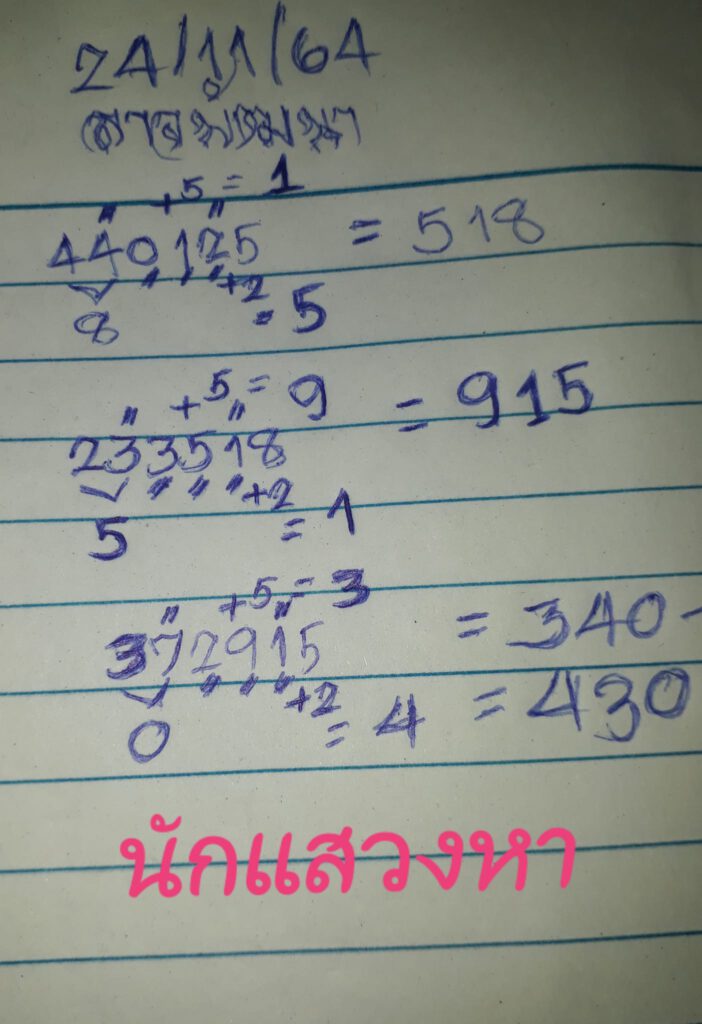 24/11/64
+5 = 1
440125 = 518
+2
8 = 5
+5 = 9
= 915
233518
+2
5 = 1
+5 = 3
372915 = 340-
+2
0 = 4 = 430
นักแสวงหา